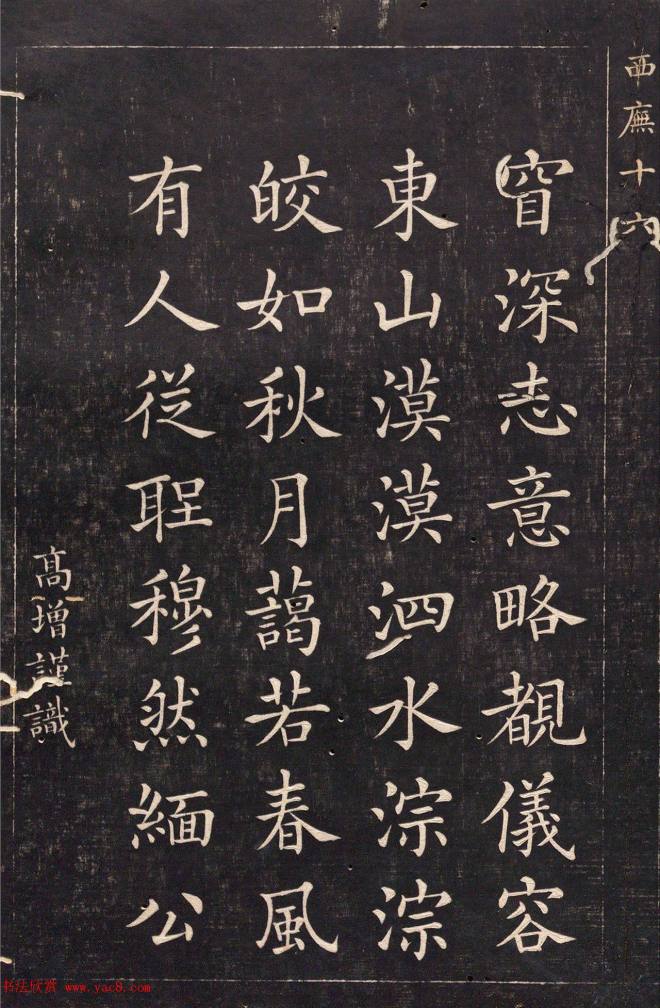 西廡十六
窅深志意略覩儀容
東山漠漠泗水淙淙
皎如秋月藹若春風
有人從聖穆然緬公
高增謹識
书法欣赏 www.yac8.com